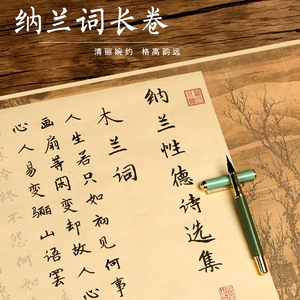 纳兰词长卷
清丽婉约 格高韵远
纳兰性德诗选集
木兰词
人生若只如初见何事
画扇等闲变却故人心
心人易变骊山语罢
终不怨何如